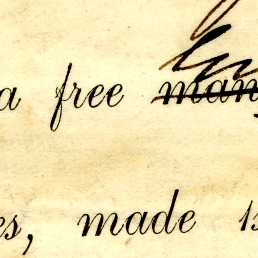 a free man
es, made is